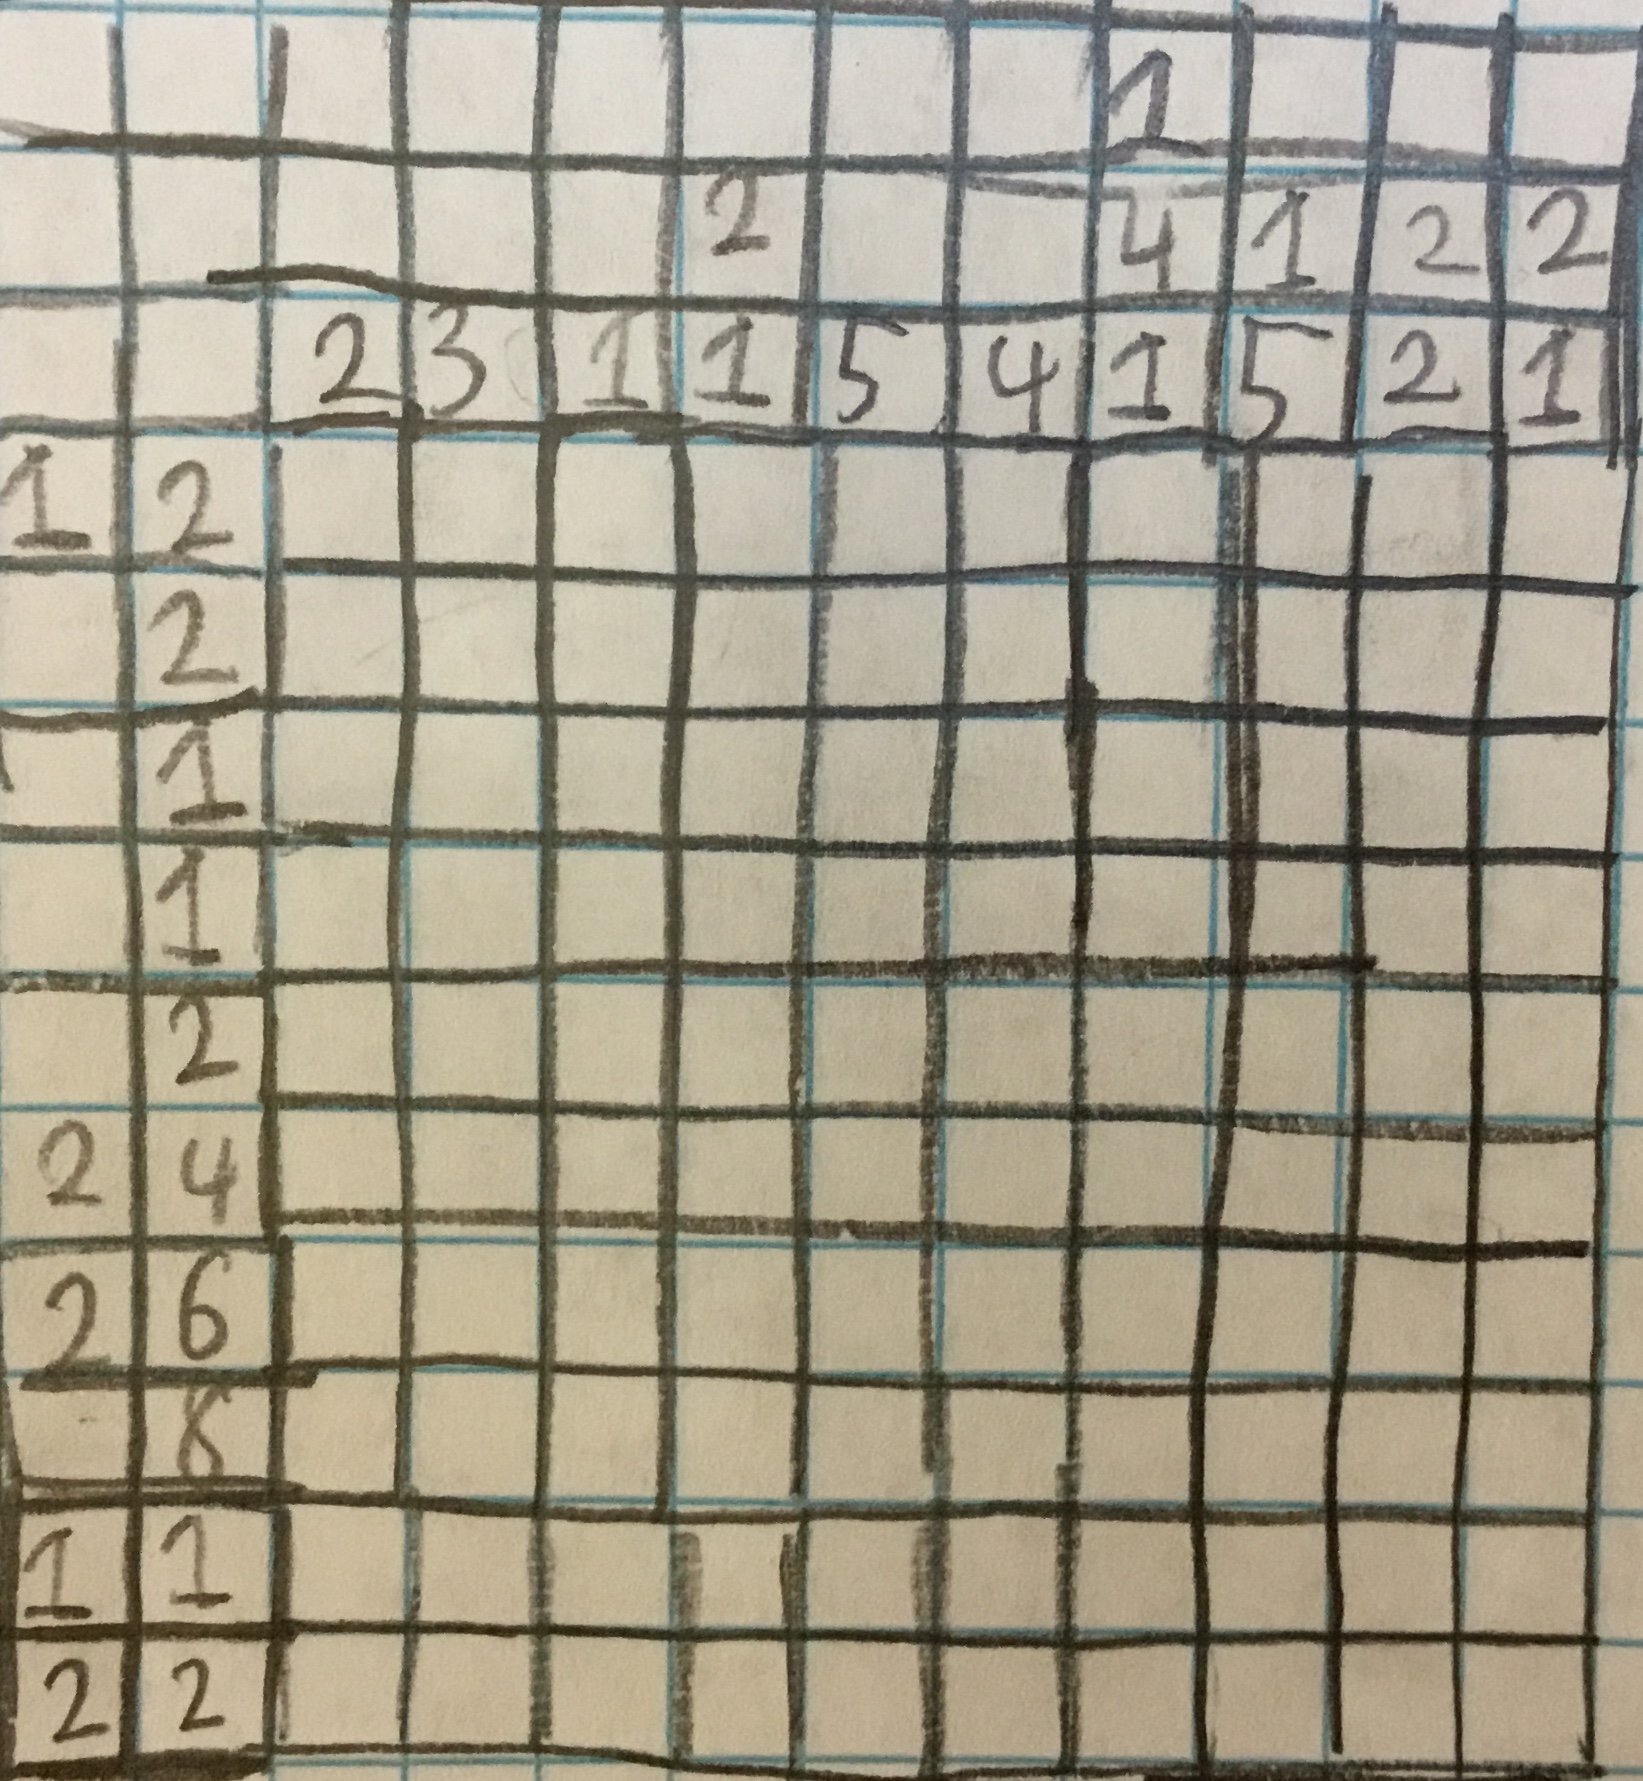 1
2 4 1 2 2
2 3 1 1 5 4 1 5 2 1
1 2
2
1
1
2
2 4
2 6
8
1 1
2 2